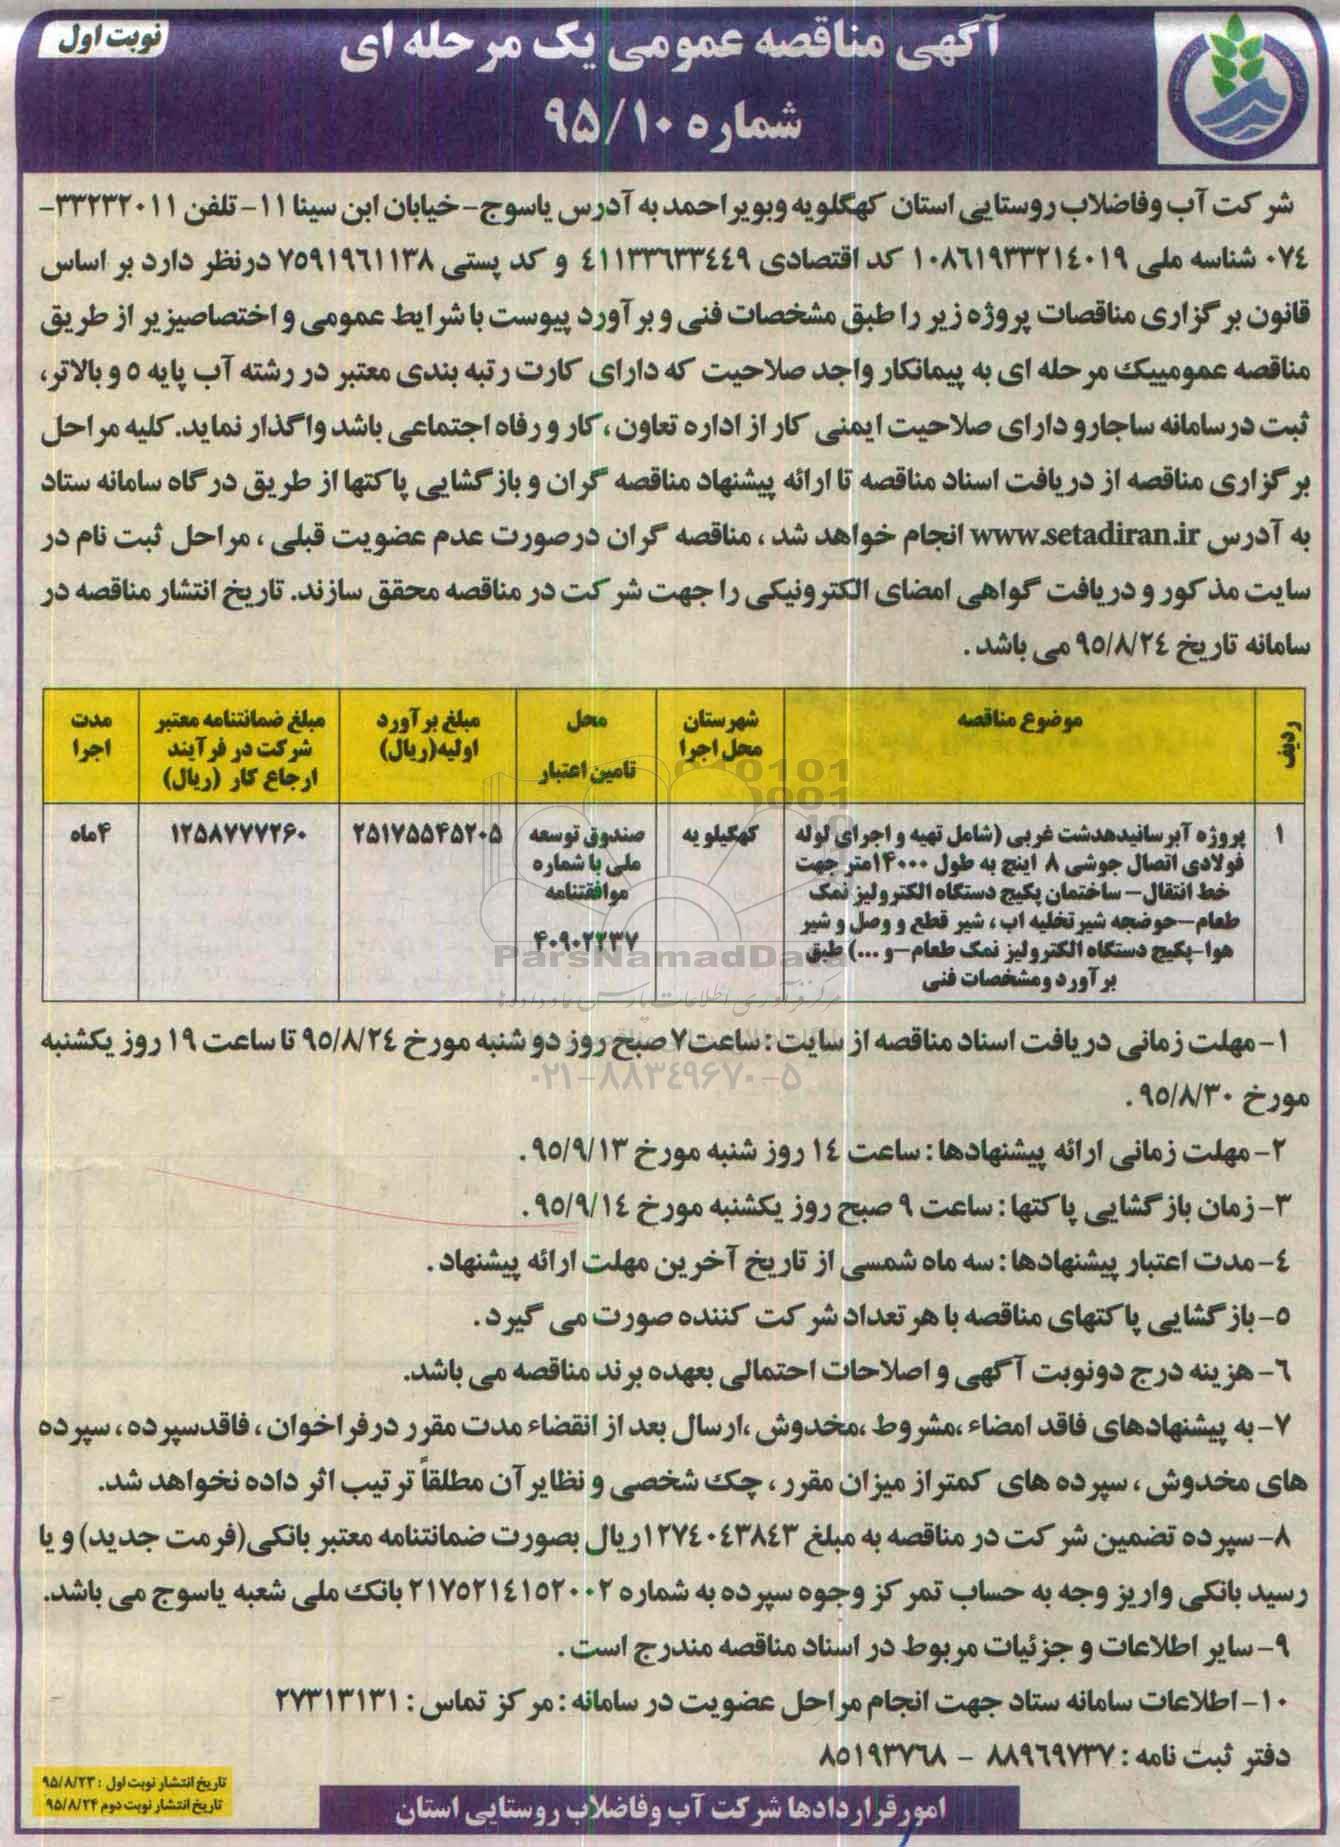 نوبت اول
آگهی مناقصه عمومی یک مرحله ای
شماره ۹۵/۱۰
شرکت آب وفاضلاب روستایی استان کهگلویه وبویراحمد به آدرس یاسوج-خیابان ابن سینا ۱۱- تلفن ۳۳۲۳۲۰۱۱-
۰۷۴ شناسه ملی ۱۰۸۶۱۹۳۳۲۱۴۰۱۹ کد اقتصادی ۴۱۱۳۳۶۳۳۴۴۹ و کد پستی ۷۵۹۱۹۶۱۱۳۸ درنظر دارد بر اساس
قانون برگزاری مناقصات پروژه زیر را طبق مشخصات فنی و برآورد پیوست با شرایط عمومی و اختصاصیزیر از طریق
مناقصه عمومییک مرحله ای به پیمانکار واجد صلاحیت که دارای کارت رتبه بندی معتبر در رشته آب پایه ۵ و بالاتر،
ثبت درسامانه ساجارو دارای صلاحیت ایمنی کار از اداره تعاون ، کار و رفاه اجتماعی باشد واگذار نماید. کلیه مراحل
برگزاری مناقصه از دریافت اسناد مناقصه تا ارائه پیشنهاد مناقصه گران و بازگشایی پاکتها از طریق درگاه سامانه ستاد
به آدرس www.setadiran.ir انجام خواهد شد ، مناقصه گران درصورت عدم عضویت قبلی ، مراحل ثبت نام در
سایت مذکور و دریافت گواهی امضای الکترونیکی را جهت شرکت در مناقصه محقق سازند. تاریخ انتشار مناقصه در
سامانه تاریخ ۹۵/۸/۲۴ می باشد .
ردیف
موضوع مناقصه
شهرستان
محل اجرا
محل
تامین اعتبار
مبلغ برآورد
اولیه(ریال)
مبلغ ضمانتنامه معتبر
شرکت در فرآیند
ارجاع کار (ریال)
مدت
اجرا
۱
پروژه آبرسانیدهدشت غربی (شامل تهیه و اجرای لوله
فولادی اتصال جوشی ۸ اینچ به طول ۱۴۰۰۰متر جهت
خط انتقال- ساختمان پکیج دستگاه الکترولیز نمک
طعام-حوضچه شیرتخلیه اب ، شیر قطع و وصل و شیر
هوا-پکیج دستگاه الکترولیز نمک طعام-و ...) طبق
برآورد ومشخصات فنی
کهگیلویه
صندوق توسعه
ملی با شماره
موافقتنامه
۴۰۹۰۲۲۳۷
۲۵۱۷۵۵۴۵۲۰۵
۱۲۵۸۷۷۷۲۶۰
۴ماه
ParsNamadData
مرکز فرآوری اطلاعات پارس نماد داده ها
۰۲۱-۸۸۳۴۹۶۷۰-۵
۱- مهلت زمانی دریافت اسناد مناقصه از سایت : ساعت۷ صبح روز دو شنبه مورخ ۹۵/۸/۲۴ تا ساعت ۱۹ روز یکشنبه
مورخ ۹۵/۸/۳۰ .
۲- مهلت زمانی ارائه پیشنهادها : ساعت ۱۴ روز شنبه مورخ ۹۵/۹/۱۳ .
۳- زمان بازگشایی پاکتها : ساعت ۹ صبح روز یکشنبه مورخ ۹۵/۹/۱۴ .
۴- مدت اعتبار پیشنهادها : سه ماه شمسی از تاریخ آخرین مهلت ارائه پیشنهاد .
۵- بازگشایی پاکتهای مناقصه با هر تعداد شرکت کننده صورت می گیرد .
۶- هزینه درج دونوبت آگهی و اصلاحات احتمالی بعهده برند مناقصه می باشد.
۷- به پیشنهادهای فاقد امضاء ،مشروط ،مخدوش ،ارسال بعد از انقضاء مدت مقرر درفراخوان ، فاقدسپرده ، سپرده
های مخدوش ، سپرده های کمتراز میزان مقرر ، چک شخصی و نظایرآن مطلقاً ترتیب اثر داده نخواهد شد.
۸- سپرده تضمین شرکت در مناقصه به مبلغ ۱۲۷۴۰۴۳۸۴۳ریال بصورت ضمانتنامه معتبر بانکی(فرمت جدید) و یا
رسید بانکی واریز وجه به حساب تمرکز وجوه سپرده به شماره ۲۱۷۵۲۱۴۱۵۲۰۰۲ بانک ملی شعبه یاسوج می باشد.
۹- سایر اطلاعات و جزئیات مربوط در اسناد مناقصه مندرج است .
۱۰- اطلاعات سامانه ستاد جهت انجام مراحل عضویت در سامانه : مرکز تماس : ۲۷۳۱۳۱۳۱
دفتر ثبت نامه : ۸۸۹۶۹۷۳۷ - ۸۵۱۹۳۷۶۸
تاریخ انتشار نوبت اول : ۹۵/۸/۲۳
تاریخ انتشار نوبت دوم ۹۵/۸/۲۴
امورقراردادها شرکت آب وفاضلاب روستایی استان